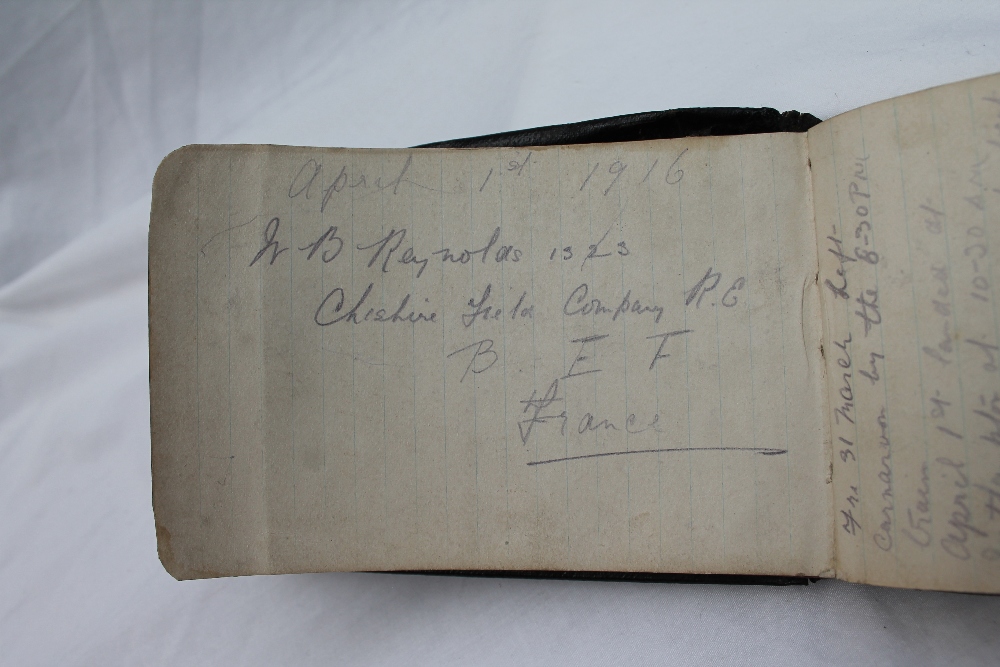 April 1st 1916
W B Reynolds 1323
Cheshire Field Company R.E
B E F
France
Fri 31 March left
Carnarvon by the 8-30 PM
train
April 1st landed at
at 10-30 AM